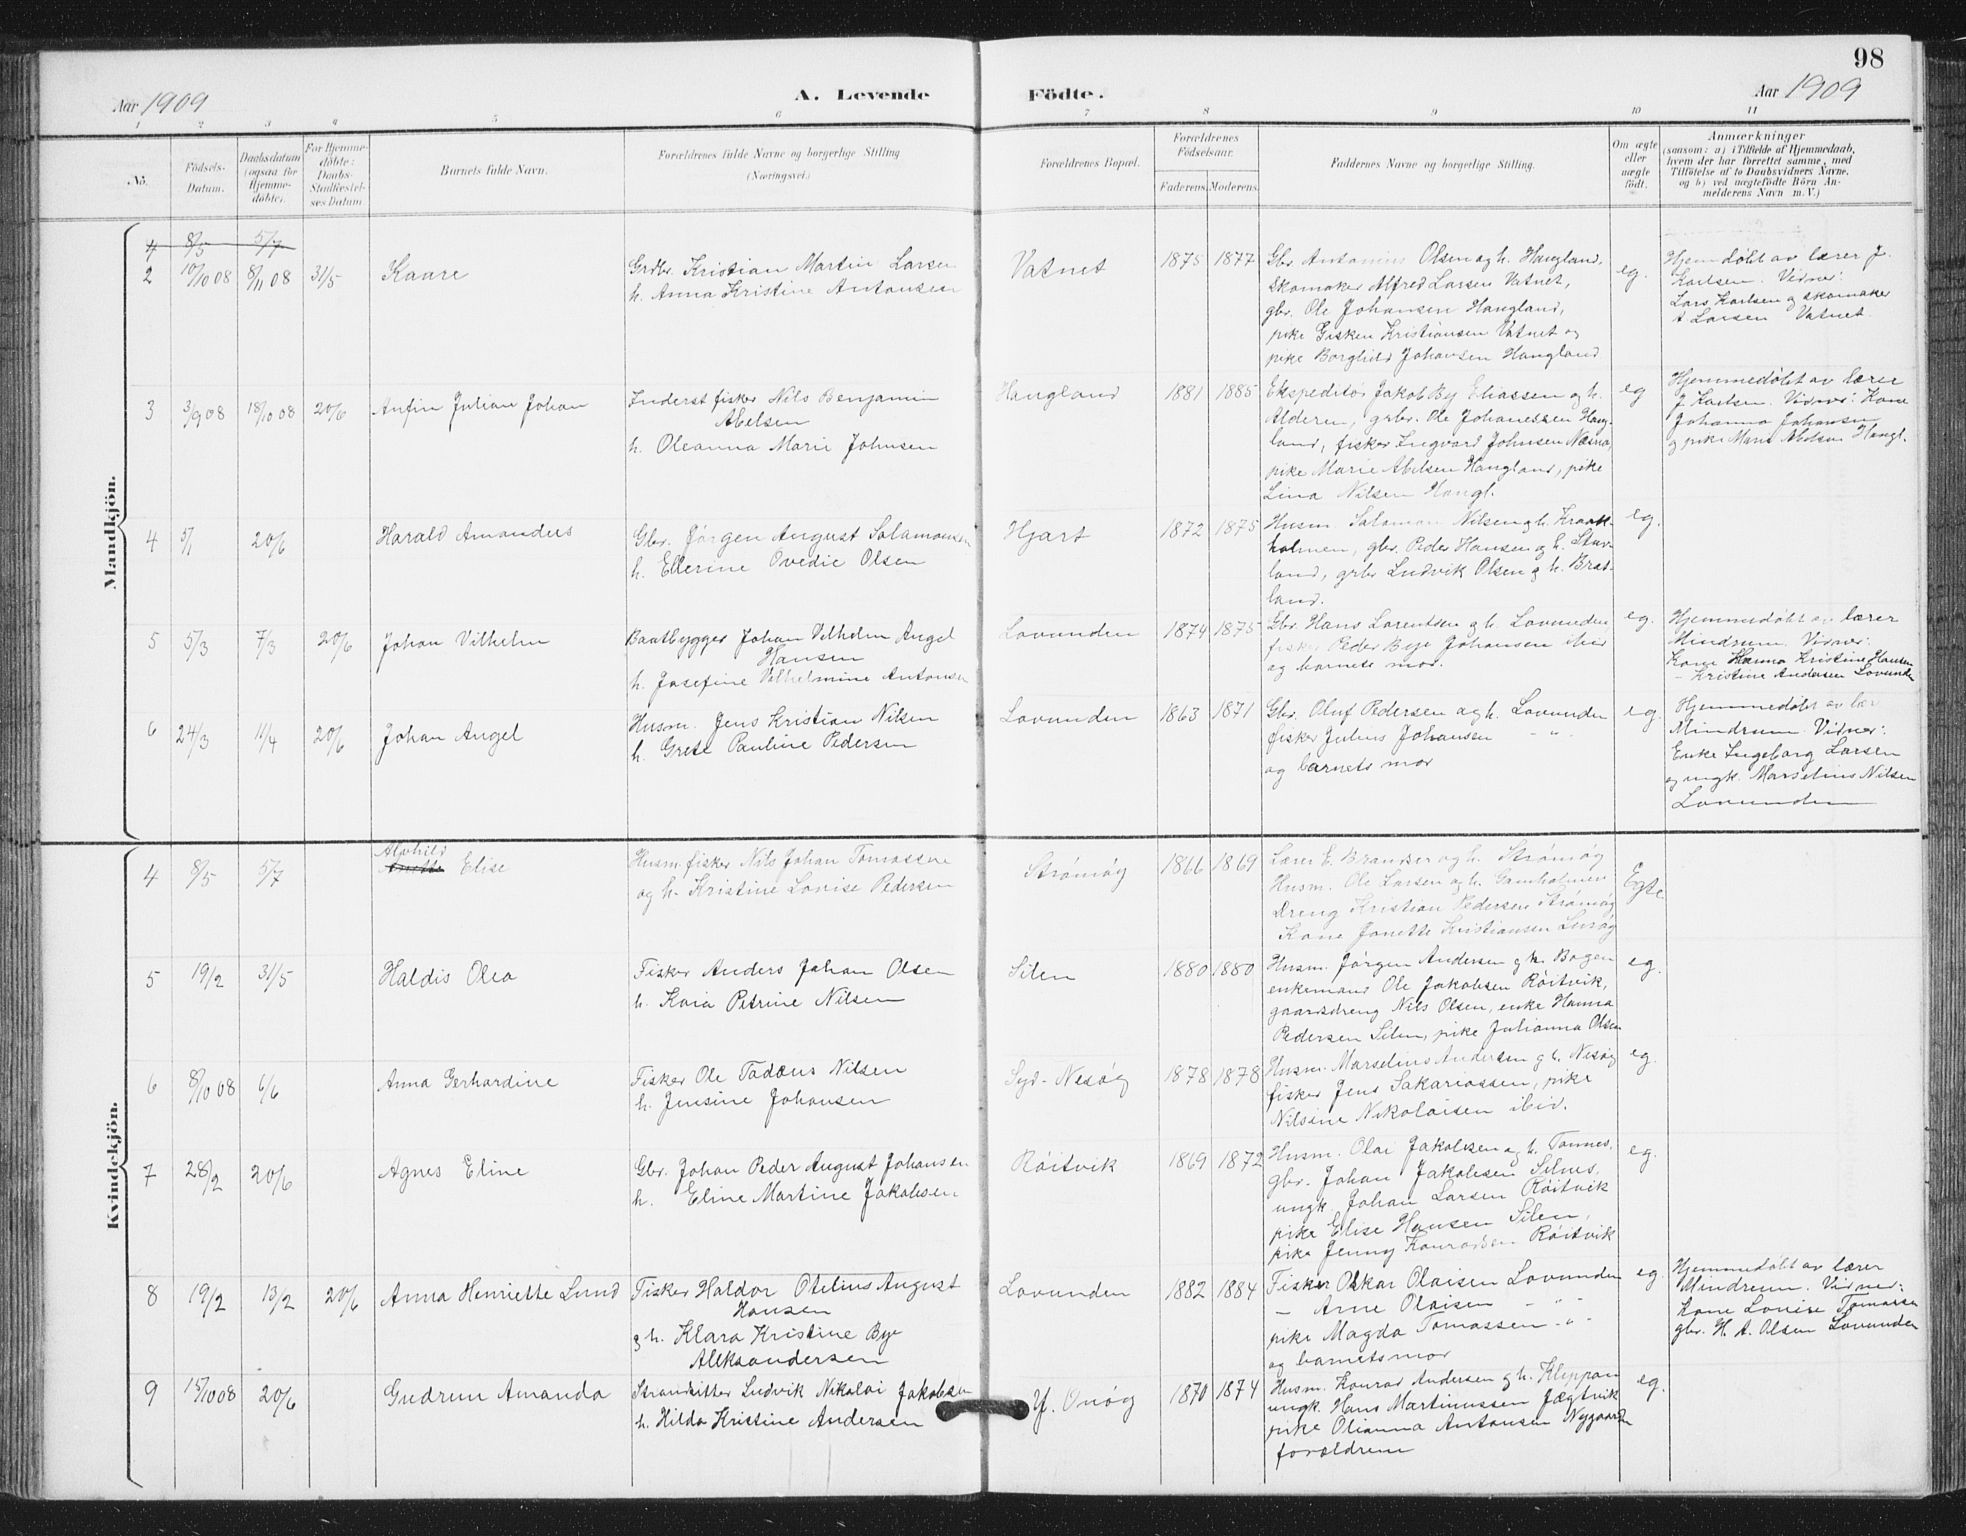 98
Aar 1909
A. Levende
Födte.
Aar 1909
1 2 3 4 5 6 7 8 9 10 11
No.
Födsels-
Datum.
Daabsdatum
(ogsaa for
Hjemme-
döbte).
For Hjemme-
döbte:
Daabs-
Stadfæstel-
ses Datum
Barnets fulde Navn.
Forældrenes fulde Navne og borgerlige Stilling
(Næringsvei.)
Forældrenes Bopæl.
Forældrenes
Födselsaar.
Faderens. Moderens.
Faddernes Navne og borgerlige Stilling.
Om ægte
eller
uægte
födt.
Anmærkninger
(saasom: a) i Tilfælde af Hjemmedaab,
hvem der har forrettet samme, med
Tilföielse af to Daabsvidners Navne,
og b) ved uægtefödte Börn An-
melderens Navn m. V.)
Mandkjön.
4 8/5 5/7
2 10/10 08 8/11 08 31/5 Kaare
Grdbr. Kristian Martin Larsen
h. Anna Kristine Antonsen
Vatnet 1875 1877
Gbr. Antonius Olsen og h. Haugland,
skomaker Alfred Larsen Vatnet,
gbr. Ole Johansen Haugland,
pike Gisken Kristiansen Vatnet og
pike Borghild Johansen Haugland
eg.
Hjemdøbt av lærer J.
Karlsen. Vidner:
Lars Karlsen og skomaker
A Larsen Vatnet.
3 3/9 08 18/10 08 20/6 Anfin Julian Johan
Inderst fisker Nils Benjamin
Abelsen
h. Oleanna Marie Johnsen
Haugland 1881 1885
Ekspeditør Jakob By Eliassen og h.
Alderen, grbr. Ole Johanessen Haug-
land, fisker Ingvard Johnsen Næsna,
pike Marie Abelsen Haugland, pike
Lina Nilsen Haugl.
eg
Hjemmedøbt av lærer
J. Karlsen. Vidner: Kone
Johanna Johansen
og pike Marie Abelsen Haugl.
4 5/1 20/6 Harald Amandus
Gbr. Jørgen August Salamonsen
h. Ellerine Ovedie Olsen
Hjart 1872 1875
Husm. Salamon Nilsen og h. Kraak-
holmen, gbr. Peder Hansen og h. Stuv-
land, grbr Ludvik Olsen og h. Brat-
land.
eg.
5 5/3 7/3 20/6 Johan Vilhelm
Baatbygger Johan Vilhelm Angel
Hansen
h. Josefine Vilhelmine Antonsen
Lovunden 1874 1875
Gbr. Hans Lorentsen og h. Lovunden
fisker Peder Bye Johansen ibid
og barnets mor.
eg.
Hjemmedøbt av lærer
Mindrum. Vidner:
Kone Hanna Kristine Hansen
— Kristine Andersen Lovunden
6 24/3 11/4 20/6 Johan Angel
Husm. Jens Kristian Nilsen
h. Grete Pauline Pedersen
Lovunden 1863 1871
Gbr. Oluf Pedersen og h. Lovunden
fisker Julius Johansen - " -
og barnets mor
eg.
Hjemmedøbt av lær
Mindrum. Vidner:
Enke Ingeborg Larsen
og ungk. Marselius Nilsen
Lovunden
Kvindekjön.
4 8/5 5/7 Alvhild Elise
Husm. fisker Nils Johan Tomassen
og h. Kristine Lovise Pedersen
Strømøy 1866 1869
Lærer E. Brandser og h. Strømøy
Husm. Ole Larsen og h. Gamholmen
Dreng Kristian Pedersen Strømøy
Kone Janette Kristiansen Lurøy
Egte
5 19/2 31/5 Haldis Olea
Fisker Anders Johan Olsen
h. Kaia Petrine Nilsen
Silen 1880 1880
Husm. Jørgen Andersen og h. Bogen
enkemand Ole Jakobsen Røitvik,
gaardsdreng Nils Olsen, enke Hanna
Pedersen Silen, pike Julianna Olsen
eg.
6 8/10 08 6/6 Anna Gerhardine
Fisker Ole Tadæus Nilsen
h. Jensine Johansen
Syd-Nesøy 1878 1878
Husm. Marselius Andersen og h. Nesøy
fisker Jens Sakariassen, pike
Nilsine Nikolaisen ibid.
eg.
7 28/2 20/6 Agnes Eline
Gbr. Johan Peder August Johansen
h. Eline Martine Jakobsen
Røitvik 1869 1872
Husm. Olai Jakobsen og h. Tonnes,
gbr. Johan Jakobsen Silnes,
ungk. Johan Larsen Røitvik
pike Elise Hansen Silen,
pike Jenny Konradsen Røitvik
eg.
8 19/2 13/2 20/6 Anna Henriette Lund
Fisker Haldor Otelius August
Hansen
og h. Klara Kristine Bye
Aleksandersen
Lovunden 1882 1884
Fisker Oskar Olaisen Lovunden
— Arne Olaisen - " -
pike Magda Tomassen - " -
og barnets mor
eg.
Hjemmedøbt av lærer
Mindrum. Vidner:
Kone Lovise Tomassen
gbr. H. A. Olsen Lovunden
9 15/10 08 20/6 Gudrun Amanda
Strandsitter Ludvik Nikolai Jakobsen
h. Hilda Kristine Andersen
Y. Onøy 1870 1874
Husm. Konrad Andersen og h. Kleppan
ungk. Hans Martinussen Jægtvik
pike Olianna Antonsen Nygaarden
forældrene
eg.